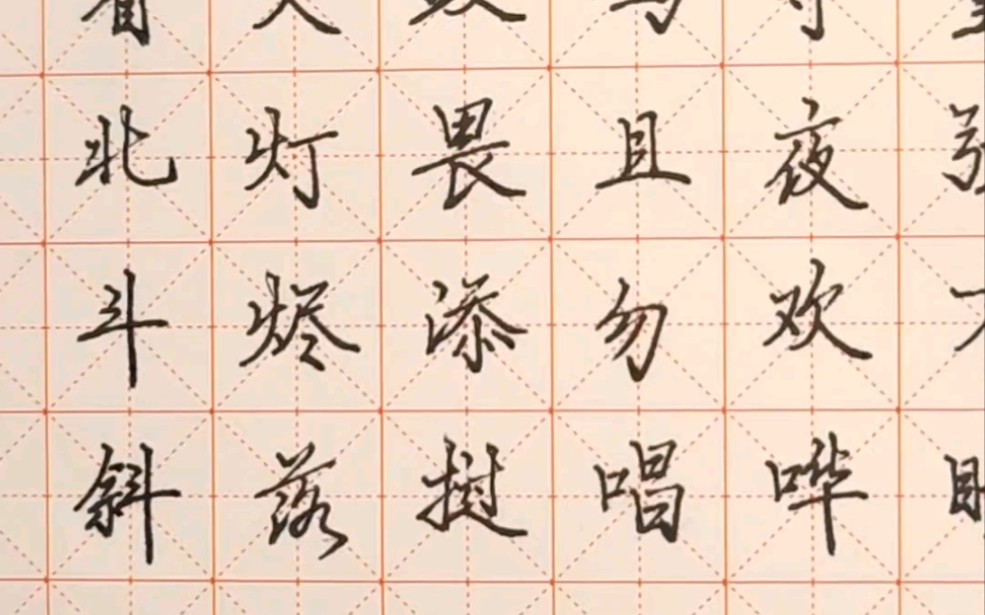 夜欢哗
且勿唱
畏添挝
灯烬落
看北斗斜